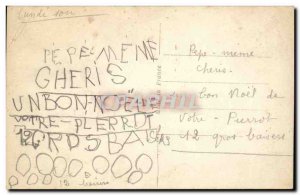 Lundi soir
PEPE MÉMÉ
CHERIS
UN BON NOËL
VOTRE PIERROT
12 GROS BAISERS
Pepe - meme
cheris.
Bon Noël de
Votre Pierrot
12 gros baisers